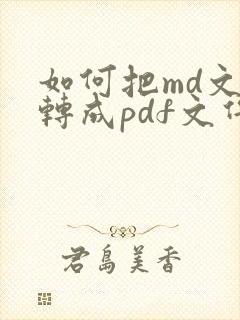 如何把md文
轉成pdf文件
君島美香